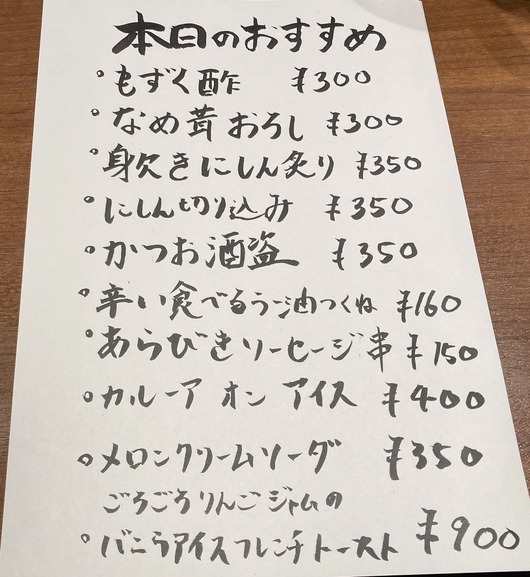 本日のおすすめ
・もずく酢 ¥300
・なめ茸おろし ¥300
・身欠きにしん炙り ¥350
・にしん切り込み ¥350
・かつお酒盗 ¥350
・辛い食べるラー油つくね ¥160
・あらびきソーセージ串 ¥150
・カルーア オン アイス ¥400
・メロンクリームソーダ ¥350
ごろごろりんごジャムの
・バニラアイスフレンチトースト ¥900